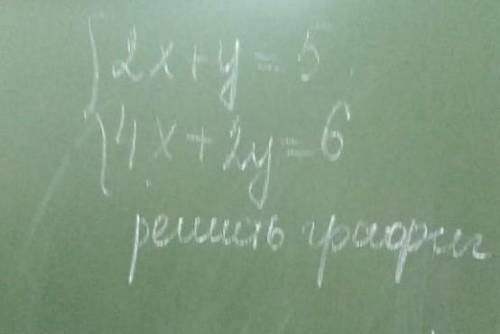 { 2x + y = 5
4x + 2y = 6
решить графич